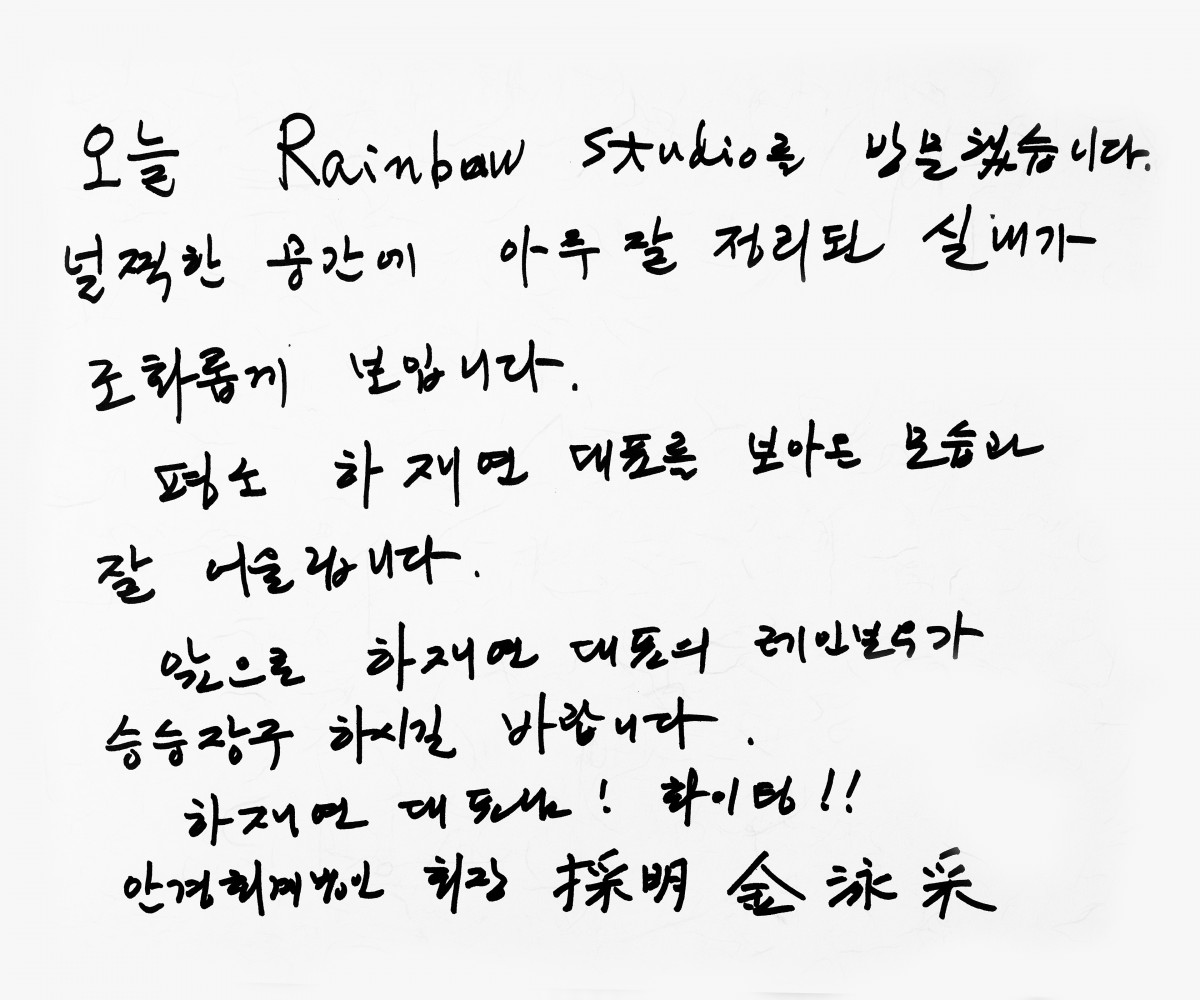 오늘 Rainbow Studio를 방문했습니다.
널찍한 공간에 아주 잘 정리된 실내가
조화롭게 보입니다.
평소 하재연 대표를 보아온 모습과
잘 어울립니다.
앞으로 하재연 대표의 레인보우가
승승장구 하시길 바랍니다.
하재연 대표님! 화이팅!!
안경회계법인 회장 採明 金泳采